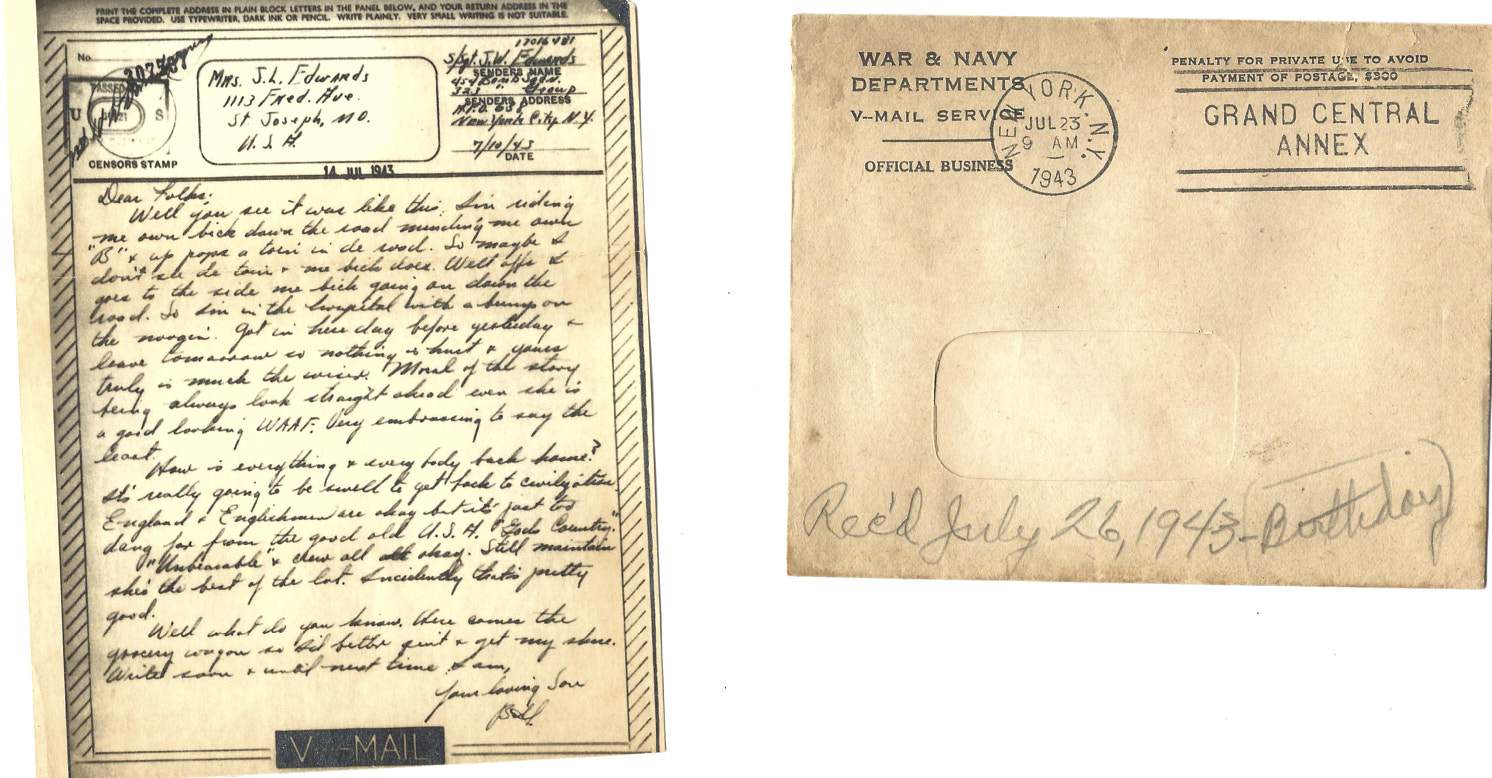 PRINT THE COMPLETE ADDRESS IN PLAIN BLOCK LETTERS IN THE PANEL BELOW, AND YOUR RETURN ADDRESS IN THE
SPACE PROVIDED. USE TYPEWRITER, DARK INK OR PENCIL. WRITE PLAINLY. VERY SMALL WRITING IS NOT SUITABLE.
No.
PASSED
U S
CENSORS STAMP
Mrs. J.L. Edwards
1113 Fred. Ave.
St Joseph, MO.
U.S.A.
17016481
S/Sgt. J.W. Edwards
SENDERS NAME
454 Bomb Sqdn.
323 " Group
SENDERS ADDRESS
A.P.O. 638
New York City, N.Y.
7/10/43
DATE
14 JUL 1943
Dear Folks:
Well you see it was like this. I'm riding
me own bick down the road minding me own
"B" & up pops a toin in de road. So maybe I
don't see de toin & me bick does. Well offs I
goes to the side me bick going on down the
road. So I'm in the hospital with a bump on
the noogin. Got in here day before yesterday &
leave tomorrow so nothing is hurt & yours
truly is much the wiser. Moral of the story
being always look straight ahead even she is
a good looking WAAF. Very embrassing to say the
least.
How is everything & every body back home?
It's really going to be swell to get back to civilization
England & Englishmen are okay but it's just too
dang far from the good old U.S.A. "Gods Country."
"Unbearable" & crew all okay. Still maintain
she's the best of the lot. Incidently that's pretty
good.
Well what do you know. Here comes the
grocery wagon so I'd better quit & get my share.
Write soon & until next time I am,
Your loving Son
Bill.
V-MAIL
WAR & NAVY
DEPARTMENTS
V-MAIL SERVICE
OFFICIAL BUSINESS
NEW YORK, N.Y.
JUL 23
9 AM
1943
PENALTY FOR PRIVATE USE TO AVOID
PAYMENT OF POSTAGE, $300
GRAND CENTRAL
ANNEX
Rec'd July 26, 1943 - (Birthday)